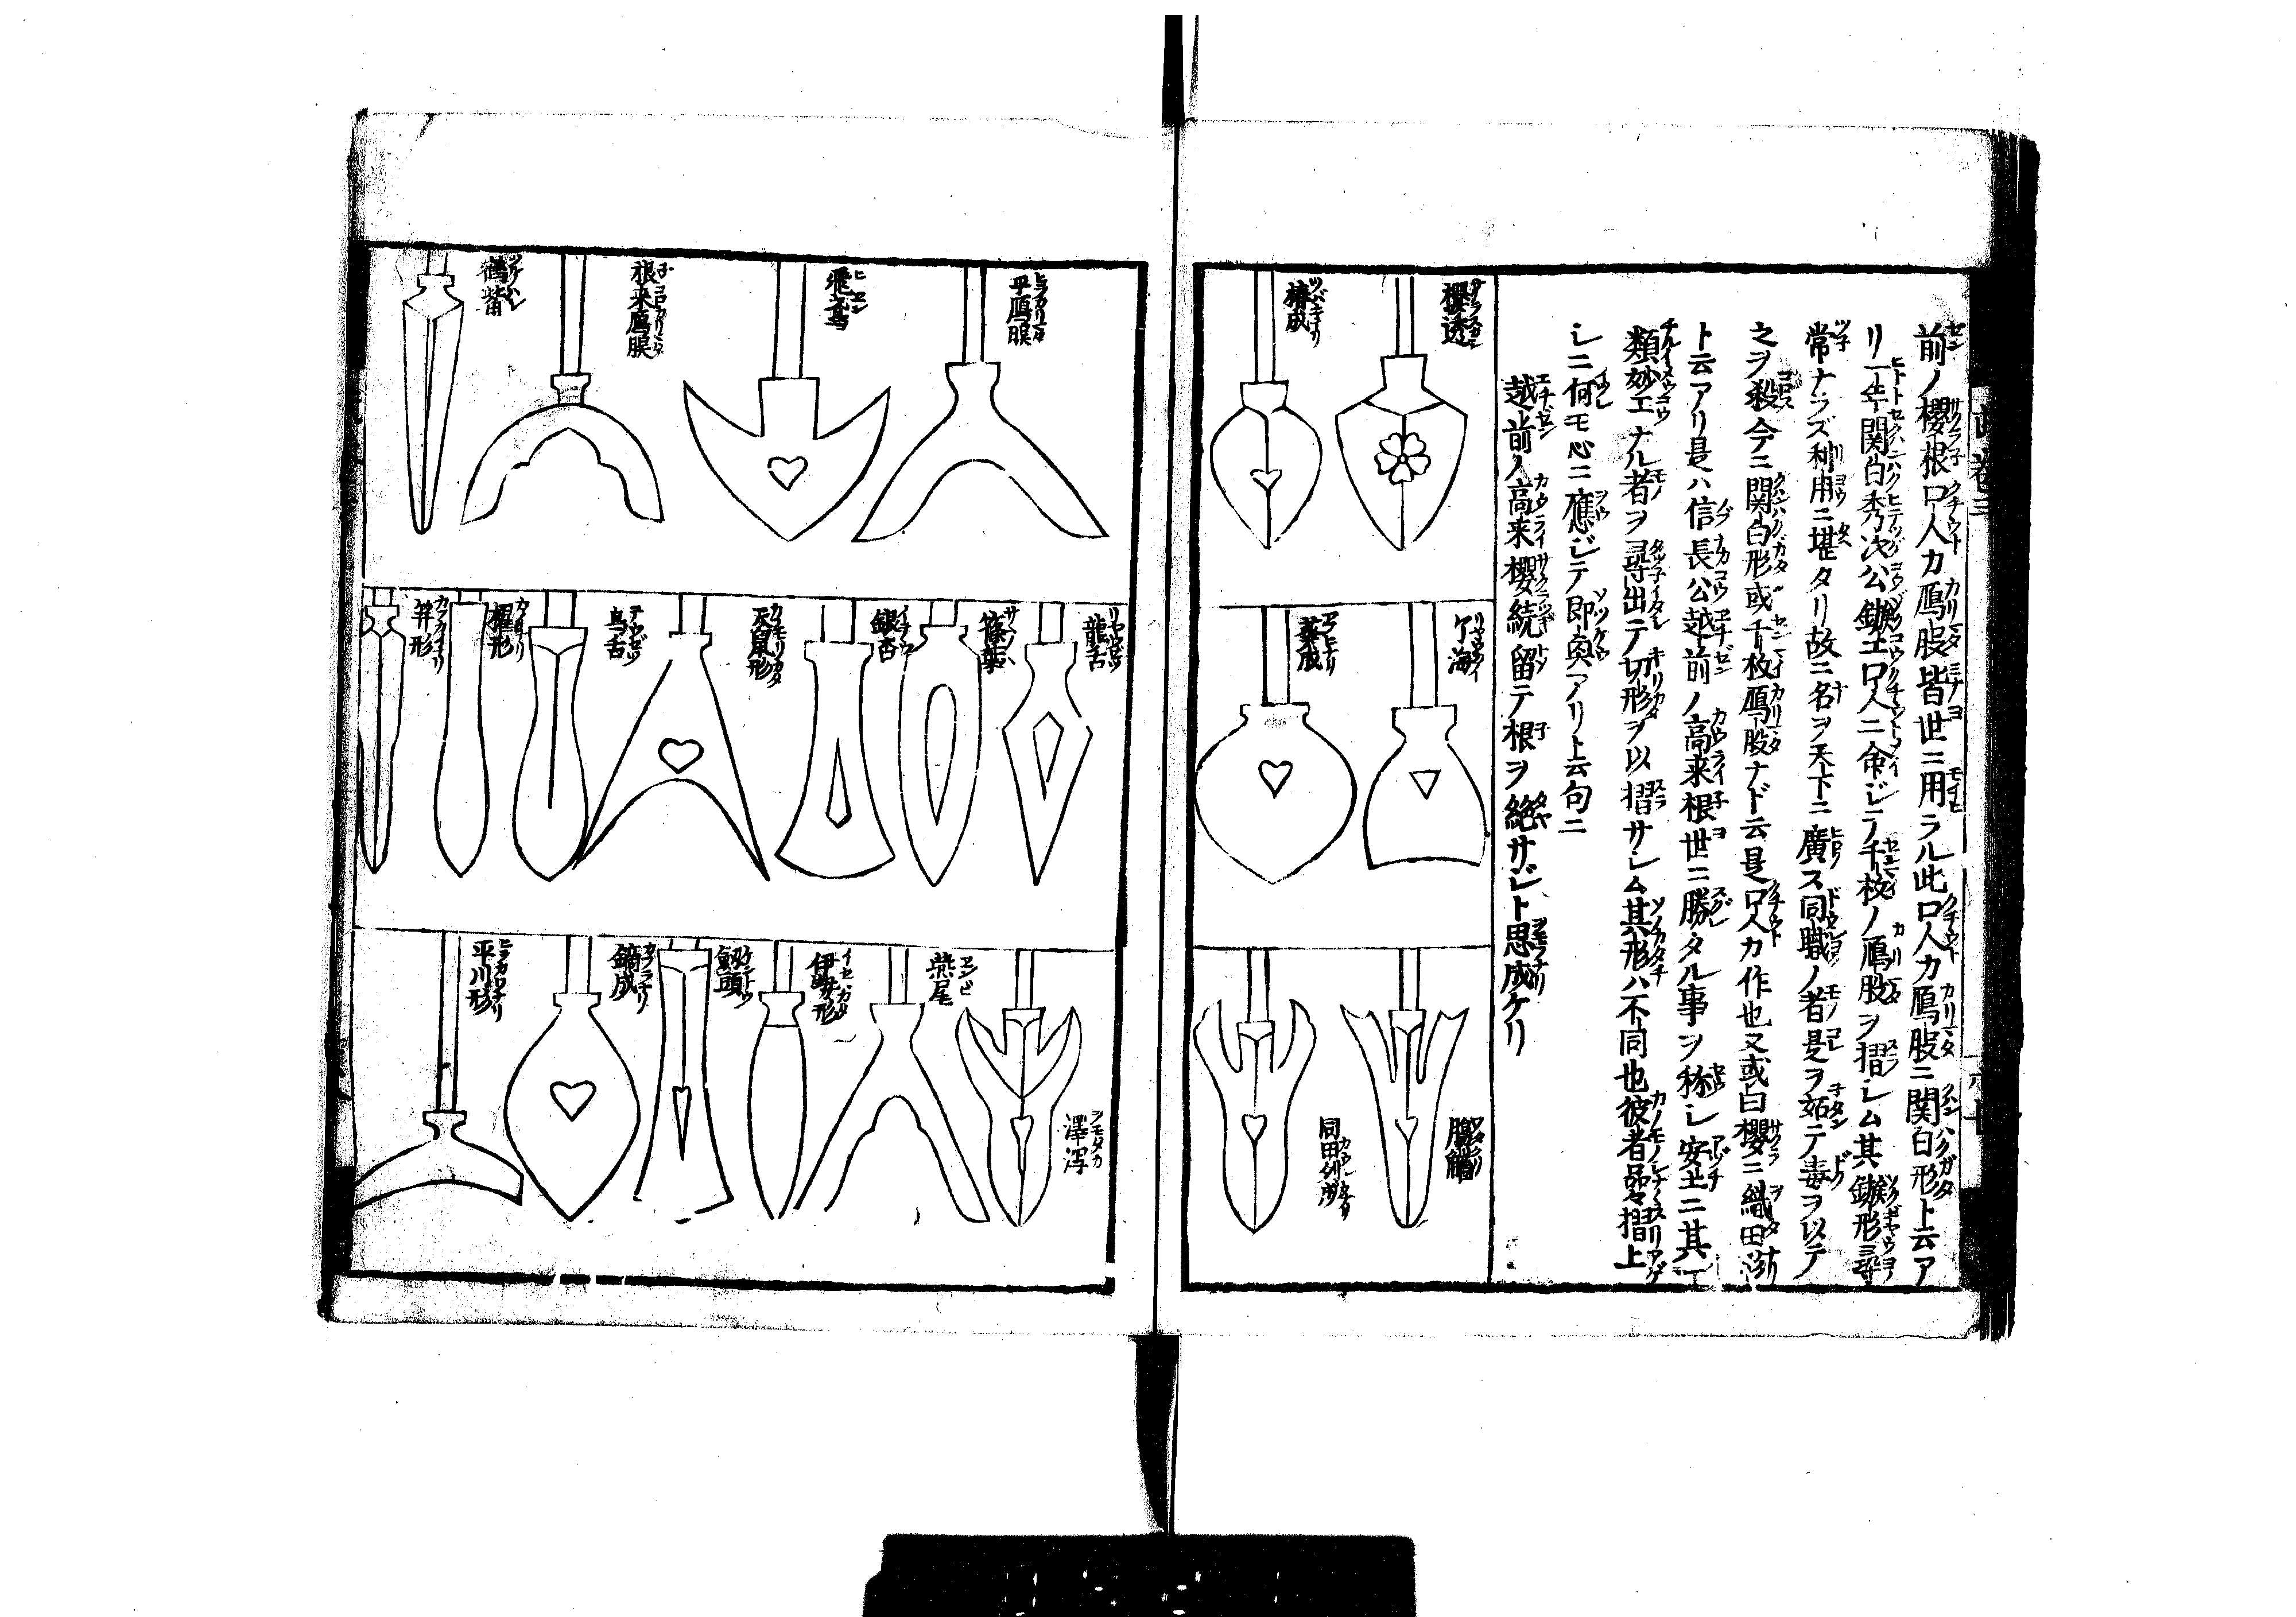 前ノ櫻根口人カ鴈股皆世ニ用ラル此口人カ鴈股ニ関白形ト云ア
リ一年関白秀次公鏃工口人ニ命ジテ千枚ノ鴈股ヲ摺シム其鏃形尋
常ナラズ利用ニ堪タリ故ニ名ヲ天下ニ廣ス同職ノ者是ヲ妬テ毒ヲ以テ
之ヲ殺今ニ関白形或千枚鴈股ナド云是口人カ作也又或曰櫻ニ織田
ト云アリ是ハ信長公越前ノ高来根世ニ勝タル事ヲ称シ安土ニ其
類妙工ナル者ヲ尋出テ切形ヲ以摺サシム其形ハ不同也彼者品々摺上
シニ何モ心ニ應ジテ即與アリト云句ニ
越前人高来櫻続留テ根ヲ絶サジト思成ケリ
櫻透
椿成
海
葵成
同田
平鴈股
飛鳶
根来鴈股
鶴觜
龍舌
篠葉
銀杏
天鼠形
鳥舌
櫂形
形
澤瀉
燕尾
伊勢形
頭
鏑成
平川形